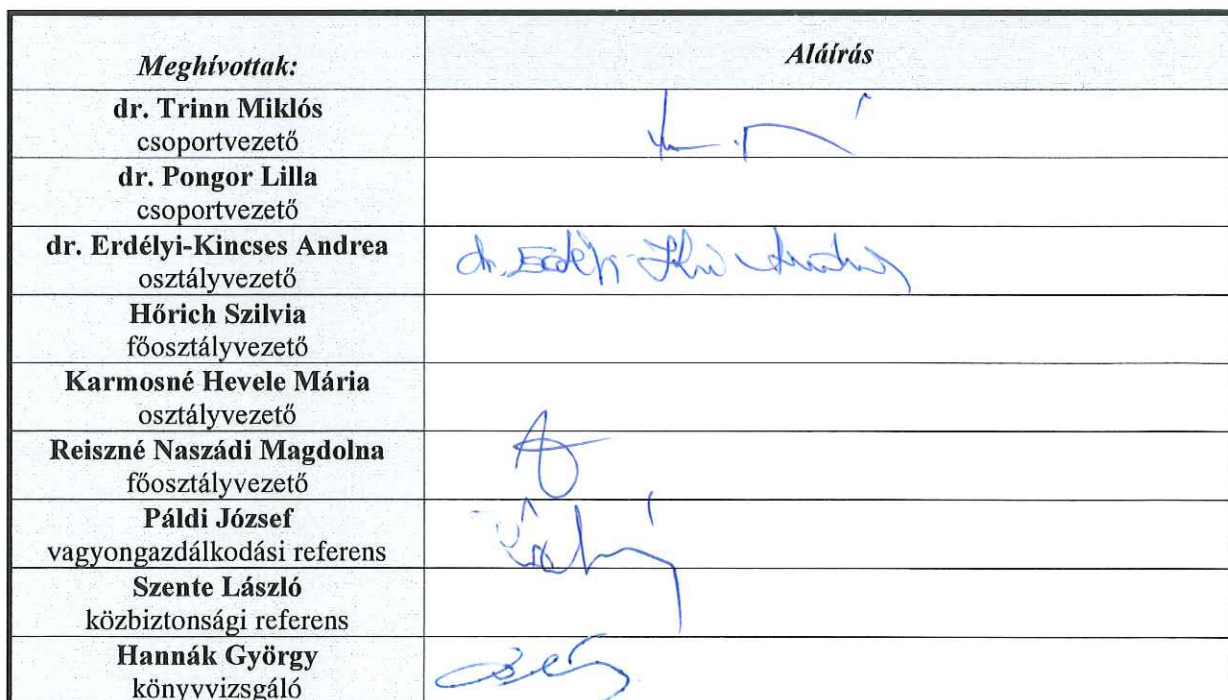 Meghívottak: Aláírás
dr. Trinn Miklós
csoportvezető
dr. Pongor Lilla
csoportvezető
dr. Erdélyi-Kincses Andrea
osztályvezető
Hőrich Szilvia
főosztályvezető
Karmosné Hevele Mária
osztályvezető
Reiszné Naszádi Magdolna
főosztályvezető
Páldi József
vagyongazdálkodási referens
Szente László
közbiztonsági referens
Hannák György
könyvvizsgáló